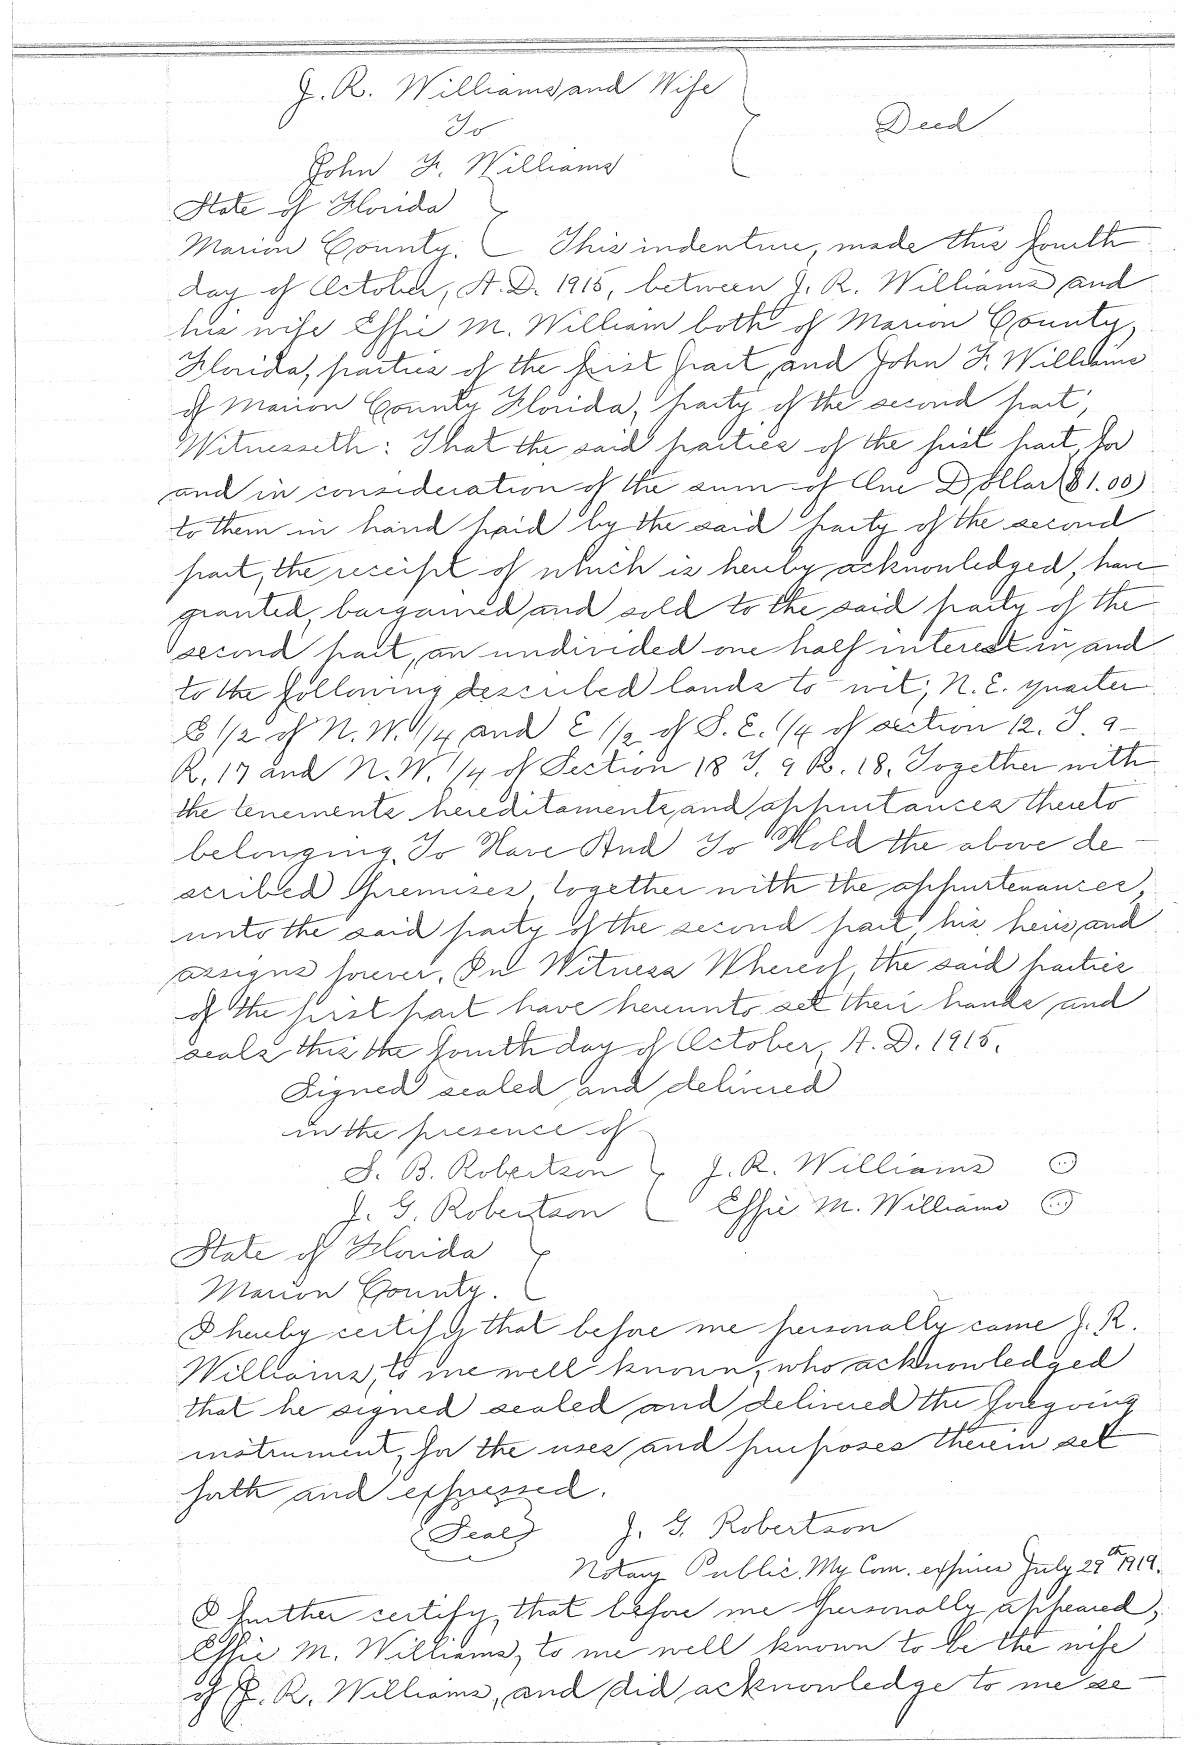 J. R. Williams and Wife
To
Deed
John F. Williams
State of Florida
Marion County. This indenture, made this fourth
day of October, A.D. 1915, between J. R. Williams and
his wife Effie M. William both of Marion County,
Florida, parties of the first part, and John F. Williams
of Marion County Florida, party of the second part,
Witnesseth: That the said parties of the first part, for
and in consideration of the sum of One Dollar ($1.00)
to them in hand paid by the said party of the second
part, the receipt of which is hereby acknowledged, have
granted, bargained and sold to the said party of the
second part, an undivided one half interest in and
to the following described lands to-wit; N.E. quarter
E 1/2 of N.W. 1/4 and E 1/2 of S.E. 1/4 of section 12. T. 9
R. 17 and N.W. 1/4 of Section 18 T. 9 R. 18. Together with
the tenements hereditaments, and appurtances thereto
belonging. To Have And To Hold the above de-
scribed premises, together with the appurtenances,
unto the said party of the second part, his heirs and
assigns forever. In Witness Whereof, the said parties
of the first part have hereunto set their hands and
seals this the fourth day of October, A.D. 1915.
Signed sealed and delivered
in the presence of
S. B. Robertson J. R. Williams
J. G. Robertson Effie M. Williams
State of Florida
Marion County.
I hereby certify that before me personally came J. R.
Williams, to me well known, who acknowledged
that he signed sealed and delivered the foregoing
instrument, for the uses and purposes therein set
forth and expressed.
(Seal) J. G. Robertson
Notary Public. My Com. expires July 29th 1919.
I further certify, that before me personally appeared,
Effie M. Williams, to me well known to be the wife
of J. R. Williams, and did acknowledge to me se-